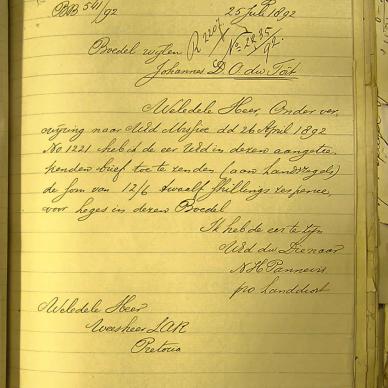 BB 541/92 25 Juli 1892
R 2207/92 No 2235/92.
Boedel wylen
Johannes D. O. du Toit
Weledele Heer, Onder ver-
wijzing naar Uwd Missive dd 26 April 1892
No 1221 heb ik de eer Uwd in dezen aangetee
kenden brief toe te zenden (aan Landzegels)
de som van 12/6 twaalf shillings zes pence
voor leges in dezen Boedel
Ik heb de eer te zijn
Uwd dw Dienaar
N H Pannevis
pro Landdrost
Weledele Heer
Weesheer Z.A.R.
Pretoria